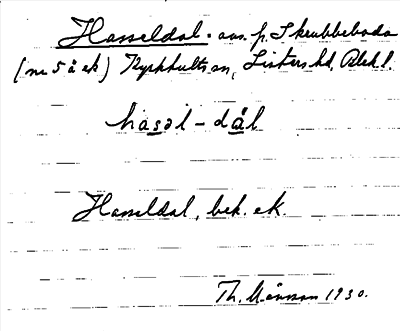 Hasseldal. avs. p. Skrubbeboda
(nr 5 å ek) Kyrkhults sn, Listers hd, Blekl.
hasəl - dål
Hasseldal, bek. ek.
Th. Månsson 1930.